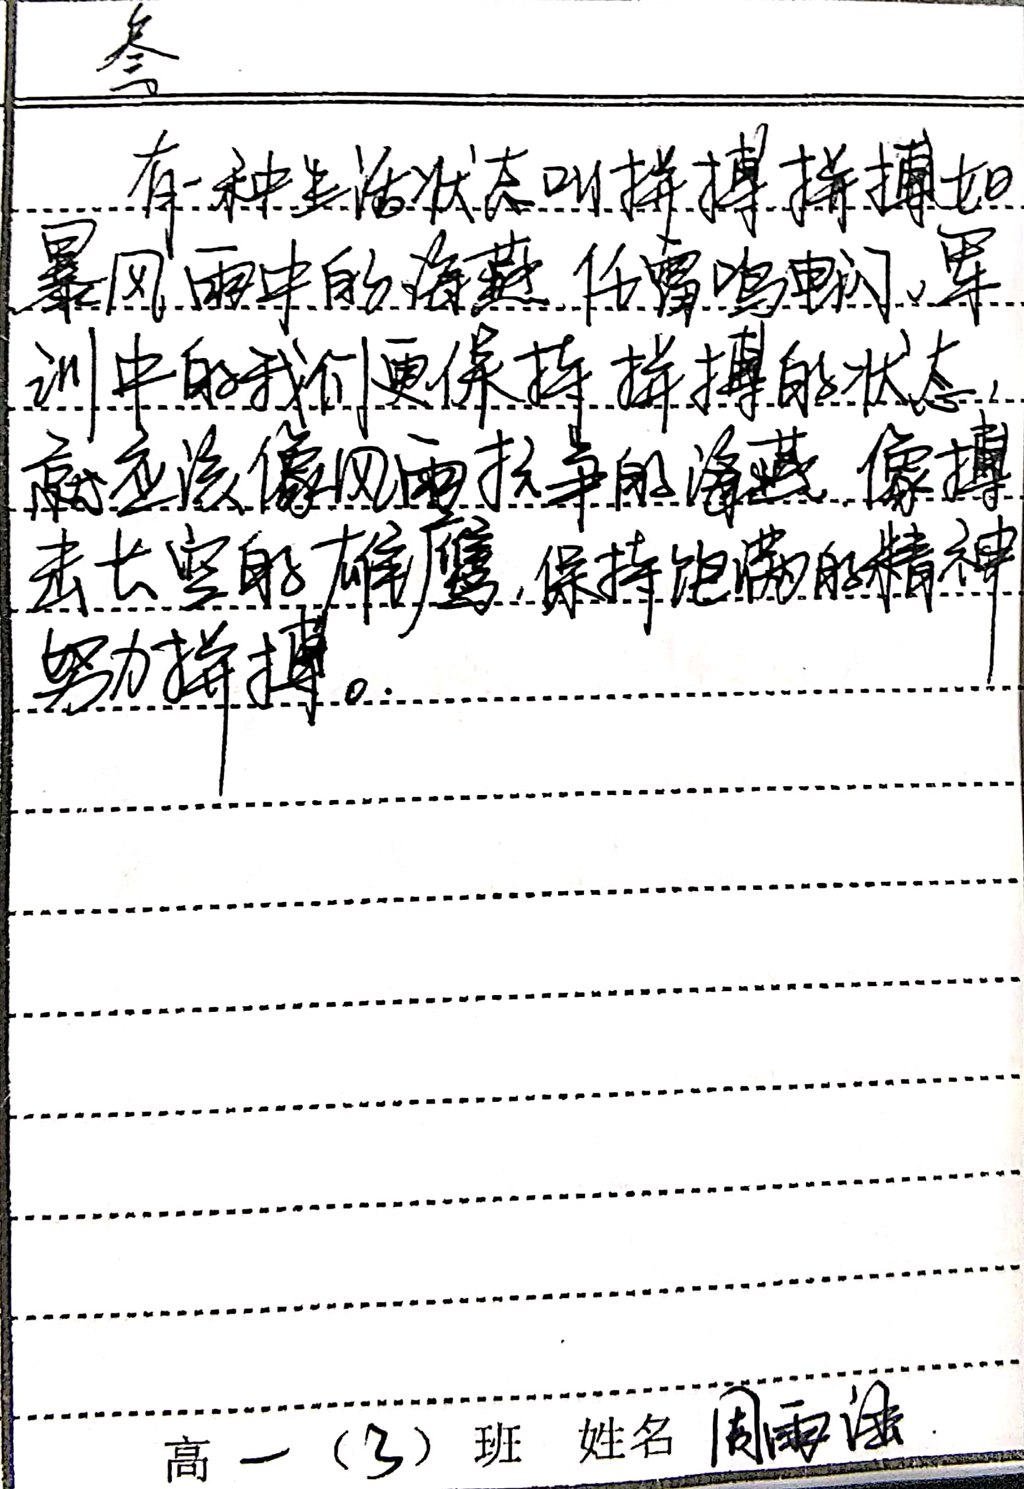 叁
有一种生活状态叫拼搏 拼搏如
暴风雨中的海燕 任雷鸣电闪。军
训中的我们更保持拼搏的状态,
就应该像风雨抗争的海燕 像搏
击长空的雄鹰,保持饱满的精神
努力拼搏。
高一(3)班 姓名 周雨